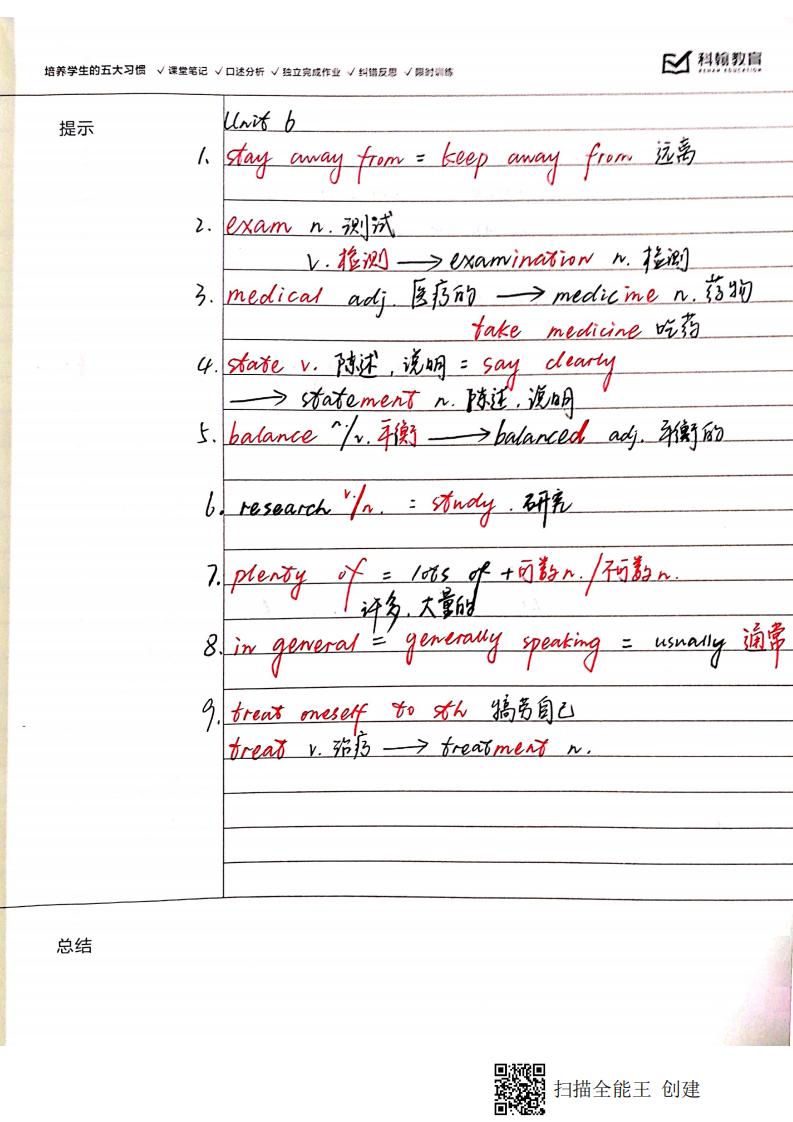 培养学生的五大习惯 ✓课堂笔记 ✓口述分析 ✓独立完成作业 ✓纠错反思 ✓限时训练
科翰教育
KEHAN EDUCATION
提示
Unit 6
1. stay away from = keep away from 远离
2. exam n. 测试
v. 检测 → examination n. 检测
3. medical adj. 医疗的 → medicine n. 药物
take medicine 吃药
4. state v. 陈述,说明 = say clearly
→ statement n. 陈述,说明
5. balance n./v. 平衡 → balanced adj. 平衡的
6. research v./n. = study. 研究
7. plenty of = lots of + 可数n./不可数n.
许多,大量的
8. in general = generally speaking = usually 通常
9. treat oneself to sth 犒劳自己
treat v. 治疗 → treatment n.
总结
扫描全能王 创建